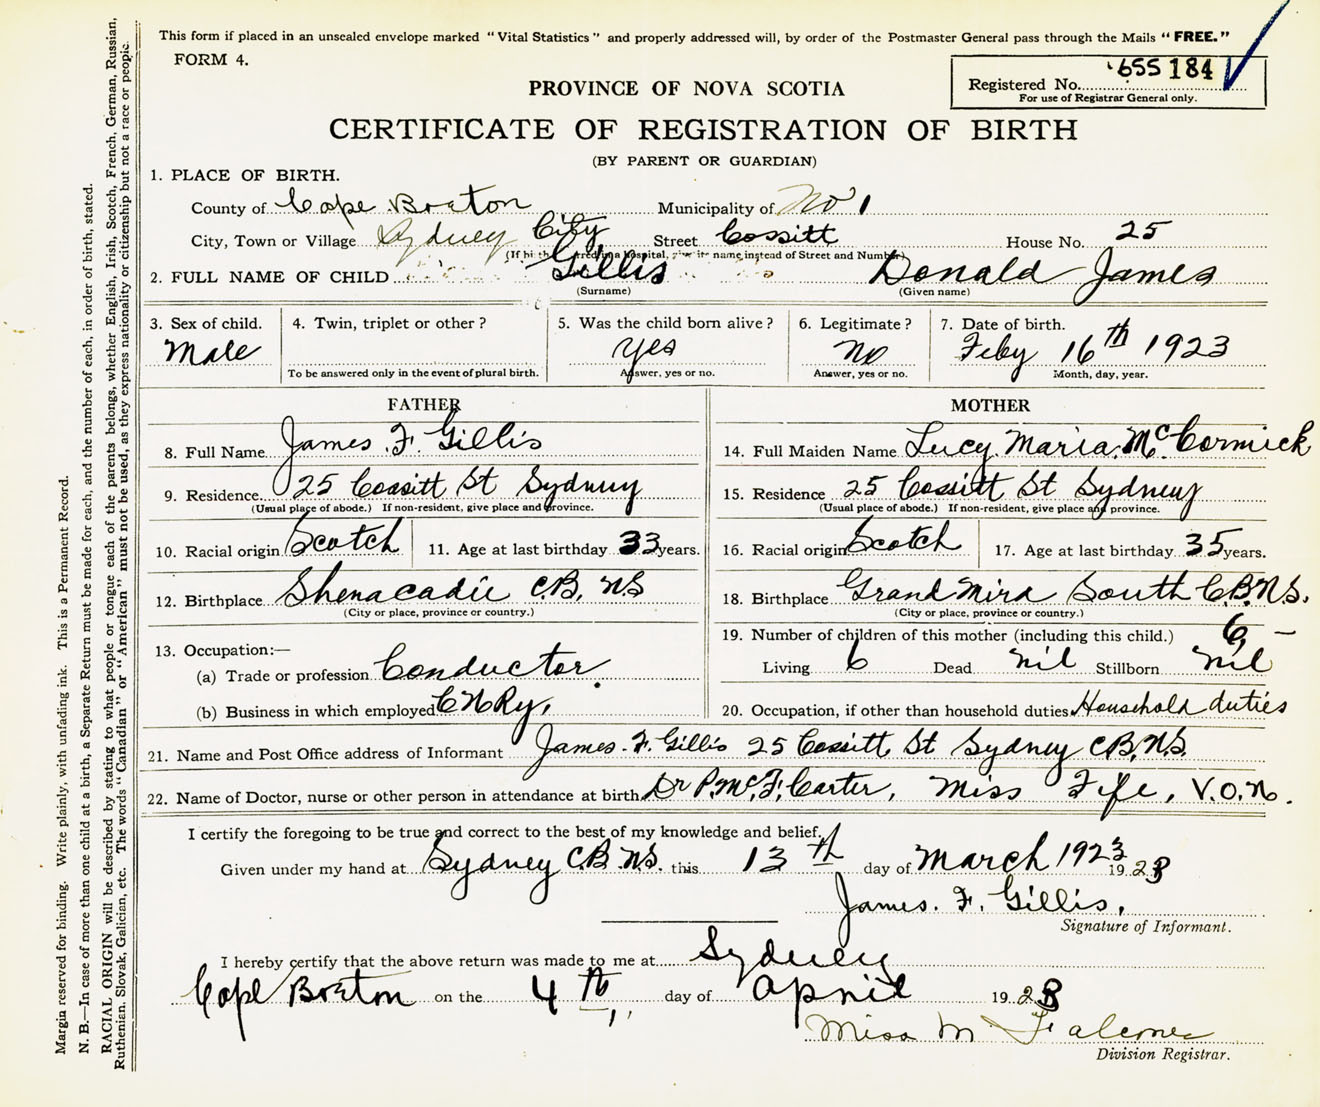 This form if placed in an unsealed envelope marked "Vital Statistics" and properly addressed will, by order of the Postmaster General pass through the Mails "FREE."
FORM 4.
Registered No. 655 184
For use of Registrar General only.
PROVINCE OF NOVA SCOTIA
CERTIFICATE OF REGISTRATION OF BIRTH
(BY PARENT OR GUARDIAN)
1. PLACE OF BIRTH.
County of Cape Breton Municipality of No 1
City, Town or Village Sydney City Street Cossitt House No. 25
hospital, name instead of Street and Number)
2. FULL NAME OF CHILD Gillis Donald James
(Surname) (Given name)
3. Sex of child. Male
4. Twin, triplet or other?
To be answered only in the event of plural birth.
5. Was the child born alive? yes
Answer, yes or no.
6. Legitimate? No
Answer, yes or no.
7. Date of birth. Feby 16th 1923
Month, day, year.
FATHER
8. Full Name James. F. Gillis
9. Residence. 25 Cossitt St Sydney
(Usual place of abode.) If non-resident, give place and province.
10. Racial origin Scotch 11. Age at last birthday 33 years.
12. Birthplace Shenacadie C.B. N.S
(City or place, province or country.)
13. Occupation:—
(a) Trade or profession Conductor.
(b) Business in which employed C N Ry,
MOTHER
14. Full Maiden Name Lucy Maria. McCormick
15. Residence 25 Cossitt St Sydney
(Usual place of abode.) If non-resident, give place and province.
16. Racial origin Scotch 17. Age at last birthday 35 years.
18. Birthplace Grand Mira South C.B.N.S.
(City or place, province or country.)
19. Number of children of this mother (including this child.) 6 –
Living 6 Dead nil Stillborn nil
20. Occupation, if other than household duties Household duties
21. Name and Post Office address of Informant James. F. Gillis 25 Cossitt St Sydney C.B.N.S.
22. Name of Doctor, nurse or other person in attendance at birth Dr P. McF. Carter, Miss Fife, V.O.N.
I certify the foregoing to be true and correct to the best of my knowledge and belief.
Given under my hand at Sydney C.B. N.S. this 13th day of March 1923 1923
James. F. Gillis,
Signature of Informant.
I hereby certify that the above return was made to me at Sydney
Cape Breton on the 4th day of April 1923
Miss M
Division Registrar.
Margin reserved for binding. Write plainly, with unfading ink. This is a Permanent Record.
N. B.—In case of more than one child at a birth, a Separate Return must be made for each, and the number of each, in order of birth, stated.
RACIAL ORIGIN will be described by stating to what people or tongue each of the parents belongs, whether English, Irish, Scotch, French, German, Russian,
Ruthenian, Slovak, Galician, etc. The words "Canadian" or "American" must not be used, as they express nationality or citizenship but not a race or people.